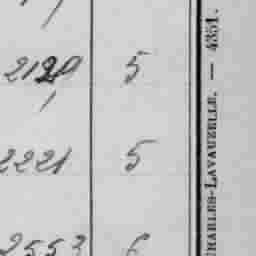 2129 5
2221 5
2553 6
CHARLES-LAVAUZELLE. — 4351.